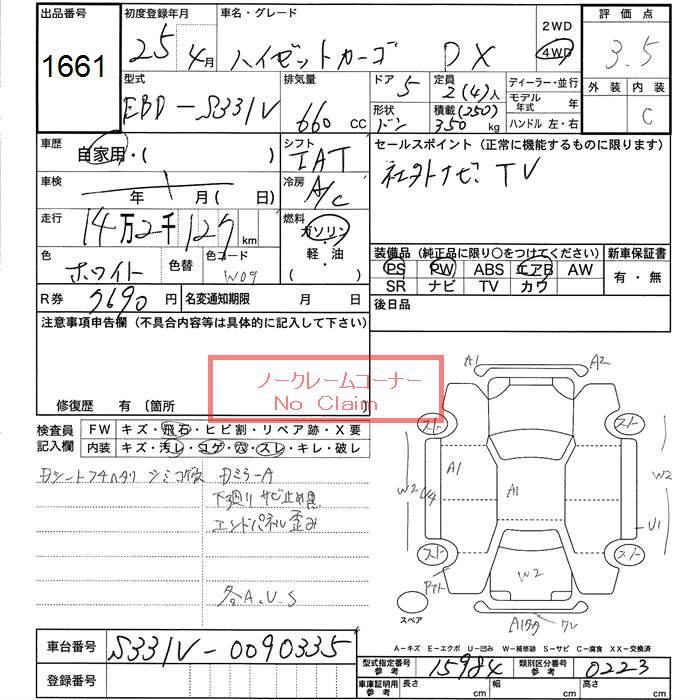 出品番号 初度登録年月 車名・グレード 2WD 評価点
1661 25年 4月 ハイゼットカーゴ DX 4WD 3.5
型式 排気量 ドア 定員 ディーラー・並行 外装 内装
EBD-S331V 660 CC 5 2(4)人 モデル年式 年 C
形状 積載(250) ハンドル 左・右
バン 350 kg
車歴 自家用・( ) シフト IAT セールスポイント(正常に機能するものに限ります)
社外ナビ TV
車検 年 月( 日) 冷房 A/C
走行 14万2千127km 燃料 ガソリン・軽・油( )
色 ホワイト 色替 色コード W09
装備品(純正品に限り〇をつけてください) 新車保証書
PS PW ABS エアB AW 有・無
SR ナビ TV カワ
R券 円 名変通知期限 月 日 後日品
注意事項申告欄(不具合内容等は具体的に記入して下さい)
ノークレームコーナー
No Claim
修復歴 有〔箇所 〕
検査員記入欄 FW キズ・飛石・ヒビ割・リペア跡・X要
内装 キズ・汚レ・コゲ・穴・スレ・キレ・破レ
下廻りサビ止め黒
エンドパネル歪み
各A.U.S
A1 A2
スト スト
A1 A1 W2 U4 W2 U1
スト スト
W2
スペア
A-キズ E-エクボ U-凹み W-補修跡 S-サビ C-腐食 XX-交換済
車台番号 S331V-0090335
型式指定番号 参考 15984 類別区分番号 参考 0223
登録番号
車庫証明用 参考 長さ cm 幅 cm 高さ cm